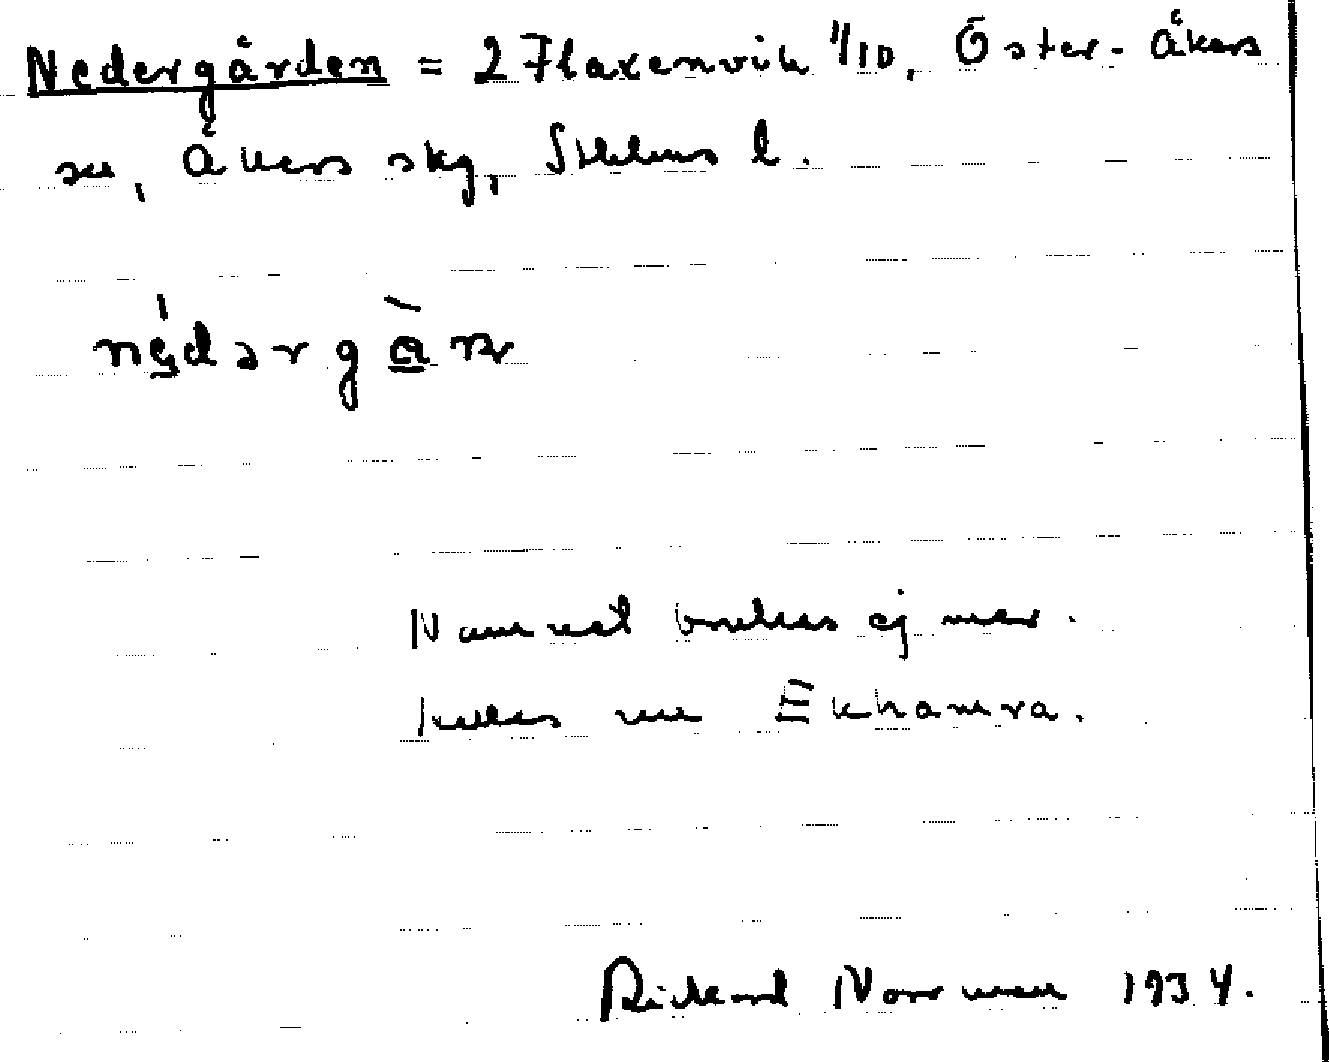 Nedergården = 2 Flaxenvik 1/10, Öster-Åkers
sn, Åkers skg, Sthlms l.
nédərgàṇ
Namnet brukas ej mer.
kallas nu Ekhamra.
Rickard Norrman 1934.